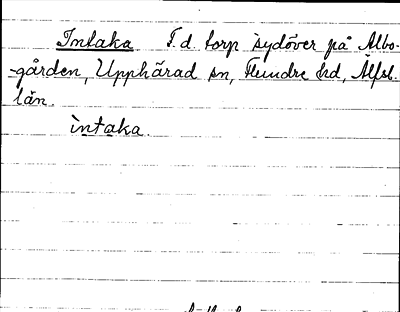 Intaka F. d. torp sydöver på Albo-
-gården, Upphärad sn, Flundre hd, Älfsb.
län.
ìntaka.